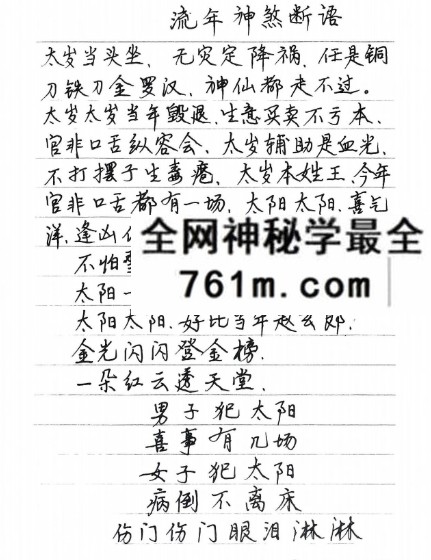 流年神煞断语
太岁当头坐，无灾定降祸，任是铜
刀铁刀金罗汉，神仙都走不过。
太岁太岁当年毁退，生意买卖不亏本，
官非口舌纵容会，太岁辅助是血光，
不打摆子生毒疮，太岁本姓王，今年
官非口舌都有一场，太阳太阳，喜气
洋，逢凶化
全网神秘学最全
不怕
761m.com
太阳一
太阳太阳，好比当年赵玄郎，
金光闪闪登金榜，
一朵红云透天堂，
男子犯太阳
喜事有几场
女子犯太阳
病倒不离床
伤门伤门眼泪淋淋